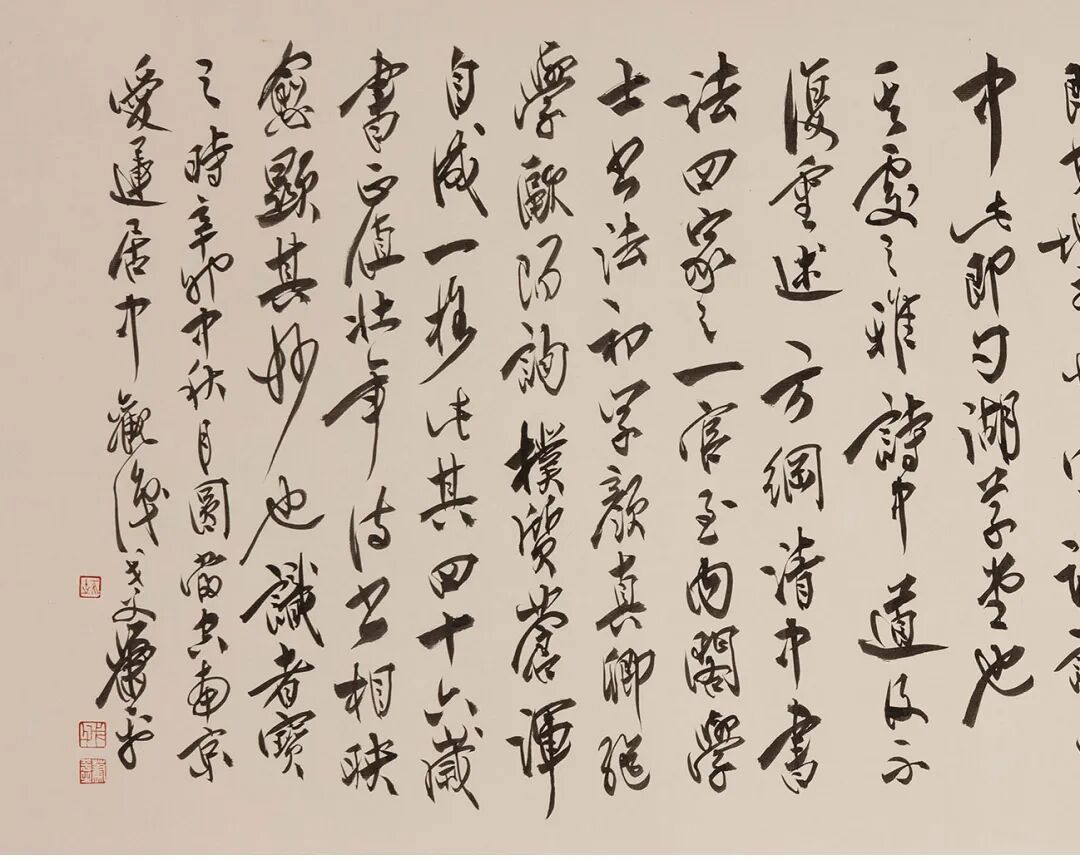 中此即勺湖草堂也
其處之雅詩中道及不
復重述方綱清中書
法四家之一官至內閣學
士公法初學顏真卿繼
學歐陽詢樸質蒼渾
自成一格此其四十六歲
書正值壯年詩書相映
愈顯其妙也識者寶
之時辛卯中秋月圓當空南京
愛蓮居中觀後